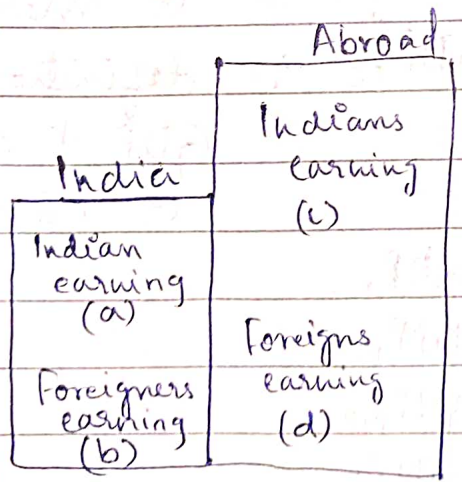 Abroad
Indians
earning
(c)
India
Indian
earning
(a)
Foreigners
earning
(b)
Foreigns
earning
(d)